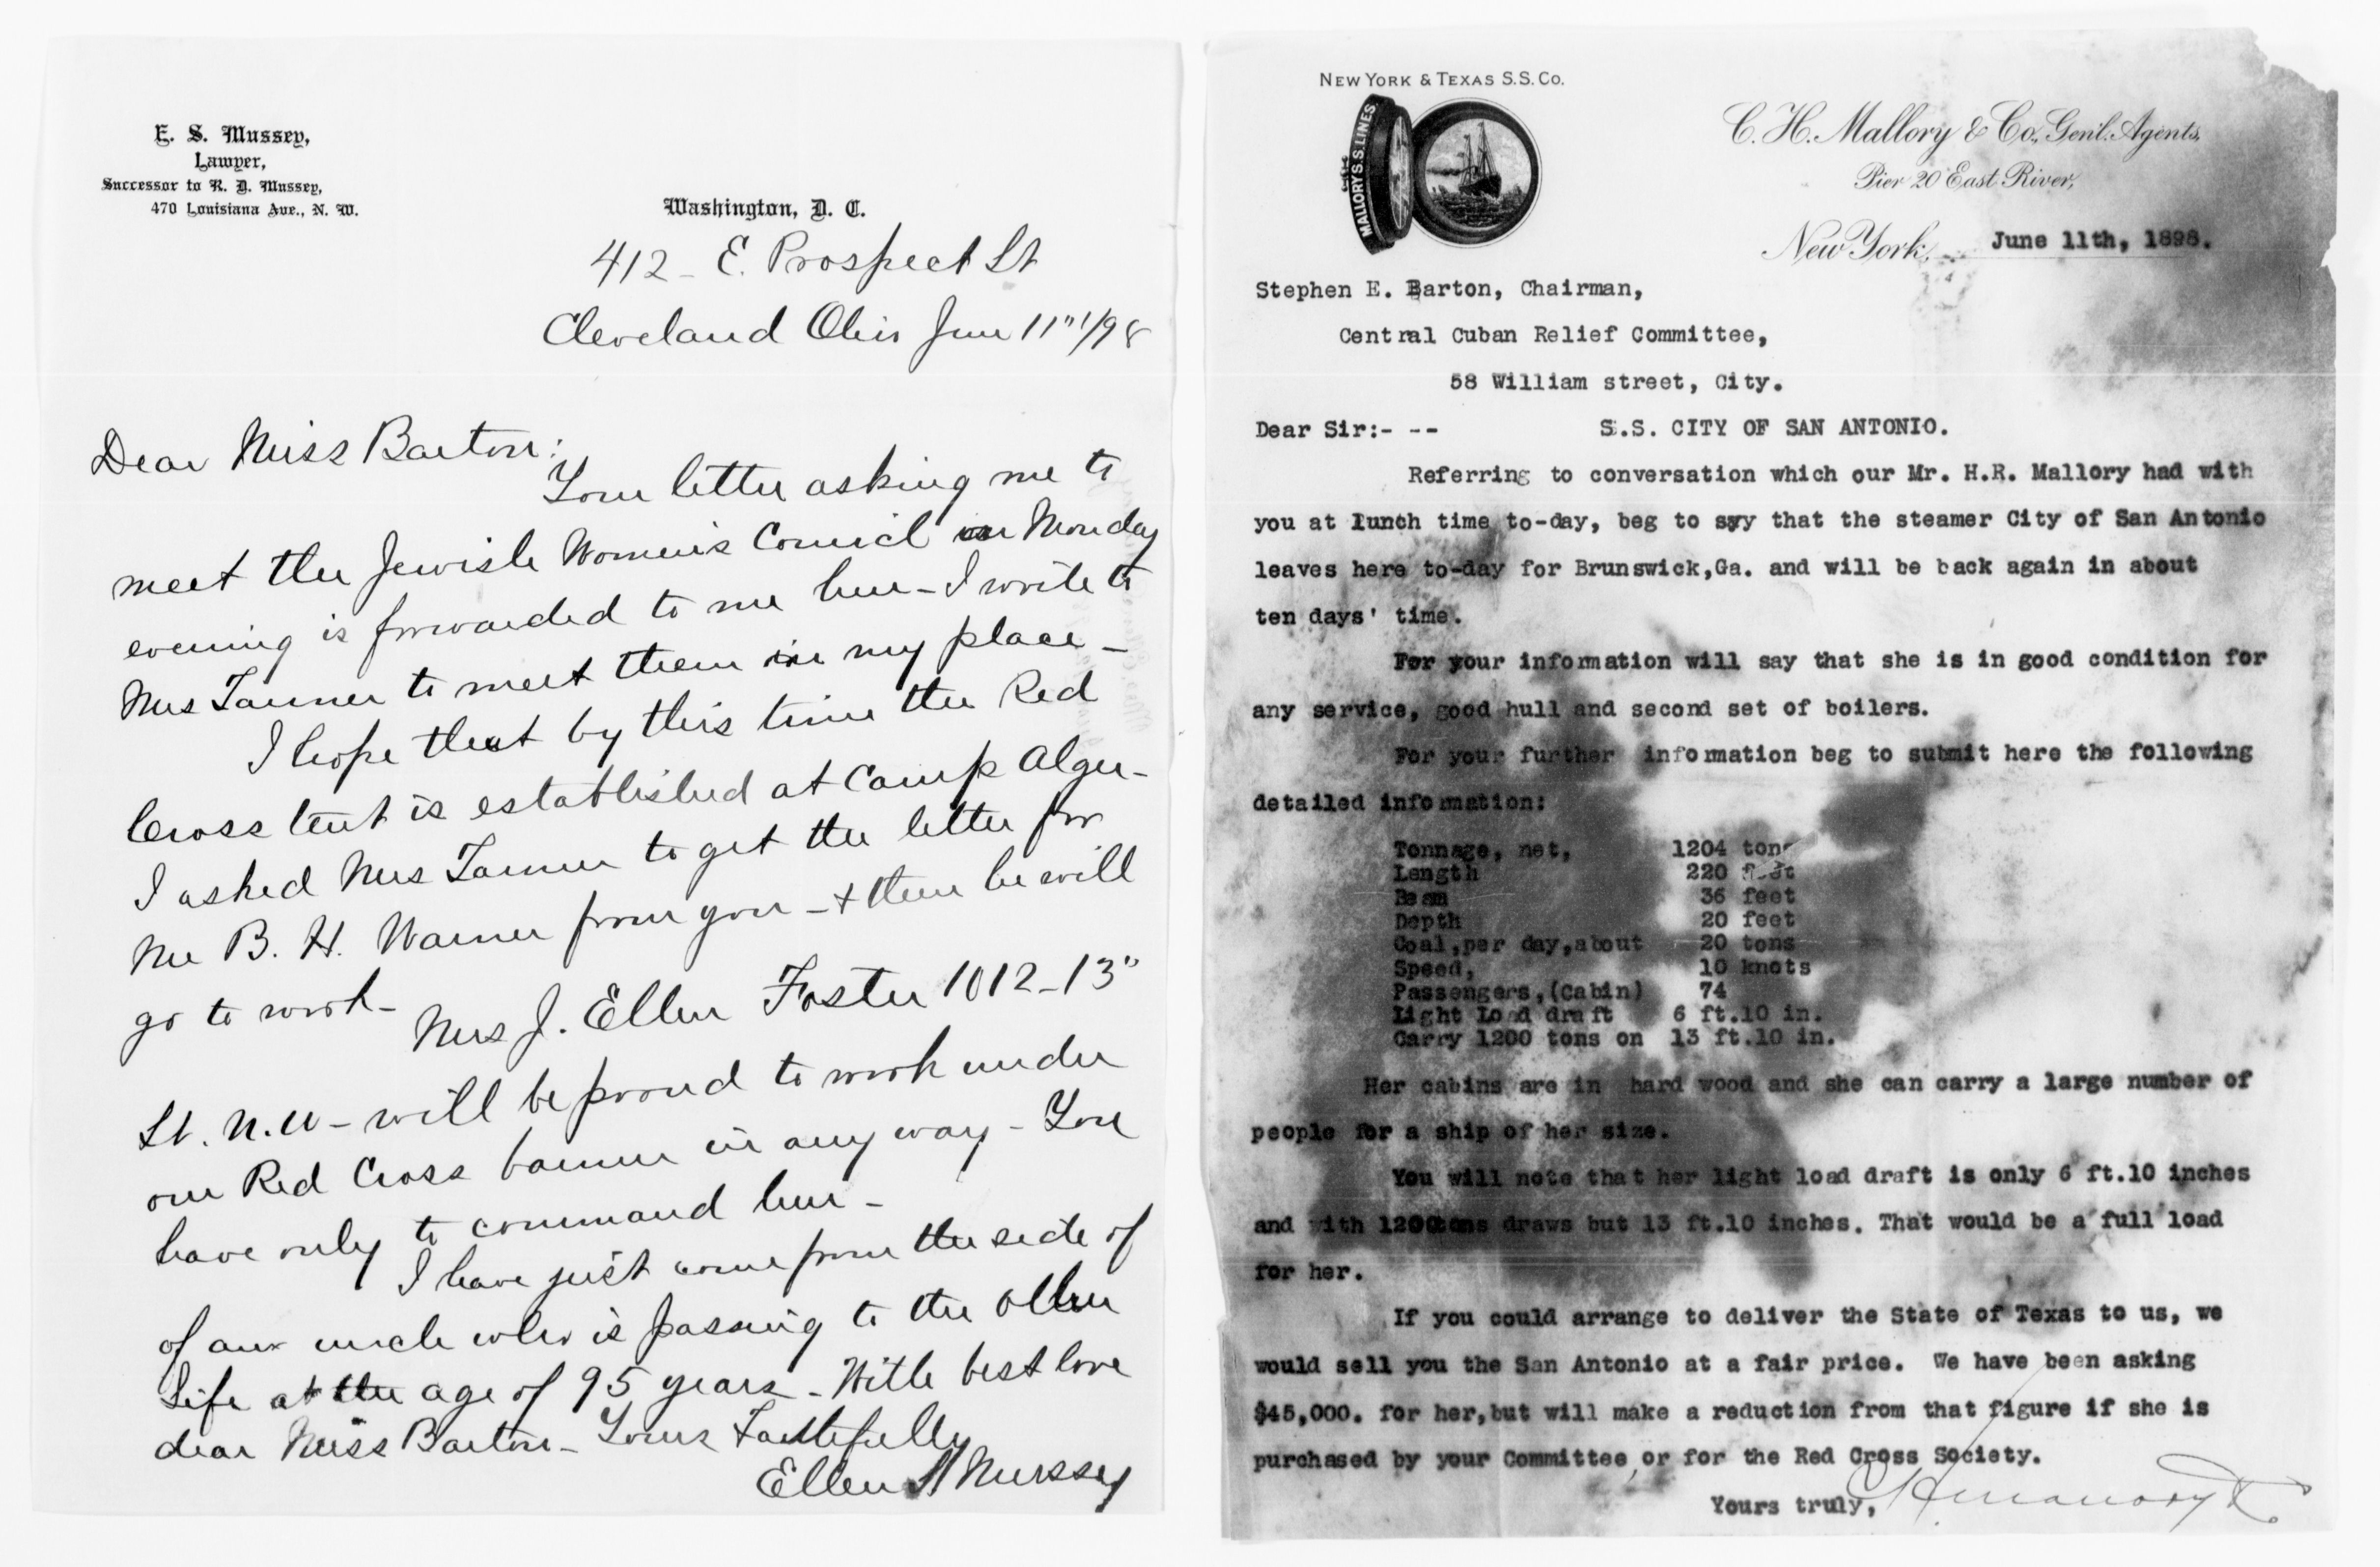 E. S. Mussey,
Lawyer,
Successor to R. D. Mussey,
470 Louisiana Ave., N. W.
Washington, D. C.
412 - E. Prospect St
Cleveland Ohio June 11"/98
Dear Miss Barton:
Your letter asking me to
meet the Jewish Women's Council on Monday
evening is forwarded to me here - I write to
Mrs Tanner to meet them in my place -
I hope that by this time the Red
Cross tent is established at Camp Alger -
I asked Mrs Tanner to get the letter for
Mr B. H. Warner from you - + then he will
go to work -
Mrs J. Ellen Foster 1012 - 13"
St. N.W - will be proud to work under
our Red Cross banner in any way - You
have only to command her -
I have just come from the side of
of an uncle who is passing to the other
life at the age of 95 years - With best love
dear Miss Barton - Yours Faithfully
Ellen S Mussey
NEW YORK & TEXAS S.S. CO.
MALLORY S.S. LINES
C. H. Mallory & Co., Gen'l. Agents,
Pier 20 East River,
New York, June 11th, 1898.
Stephen E. Barton, Chairman,
Central Cuban Relief Committee,
58 William street, City.
Dear Sir:- -- S.S. CITY OF SAN ANTONIO.
Referring to conversation which our Mr. H.R. Mallory had with
you at lunch time to-day, beg to syy that the steamer City of San Antonio
leaves here to-day for Brunswick,Ga. and will be back again in about
ten days' time.
For your information will say that she is in good condition for
any service, good hull and second set of boilers.
For your further information beg to submit here the following
detailed information:
Tonnage, net, 1204 tons
Length 220 feet
Beam 36 feet
Depth 20 feet
Coal,per day,about 20 tons
Speed, 10 knots
Passengers,(Cabin) 74
Light Load draft 6 ft.10 in.
Carry 1200 tons on 13 ft.10 in.
Her cabins are in hard wood and she can carry a large number of
people for a ship of her size.
You will note that her light load draft is only 6 ft.10 inches
and with 1200tons draws but 13 ft.10 inches. That would be a full load
for her.
If you could arrange to deliver the State of Texas to us, we
would sell you the San Antonio at a fair price. We have been asking
$45,000. for her,but will make a reduction from that figure if she is
purchased by your Committee or for the Red Cross Society.
Yours truly, C H Mallory & Co.